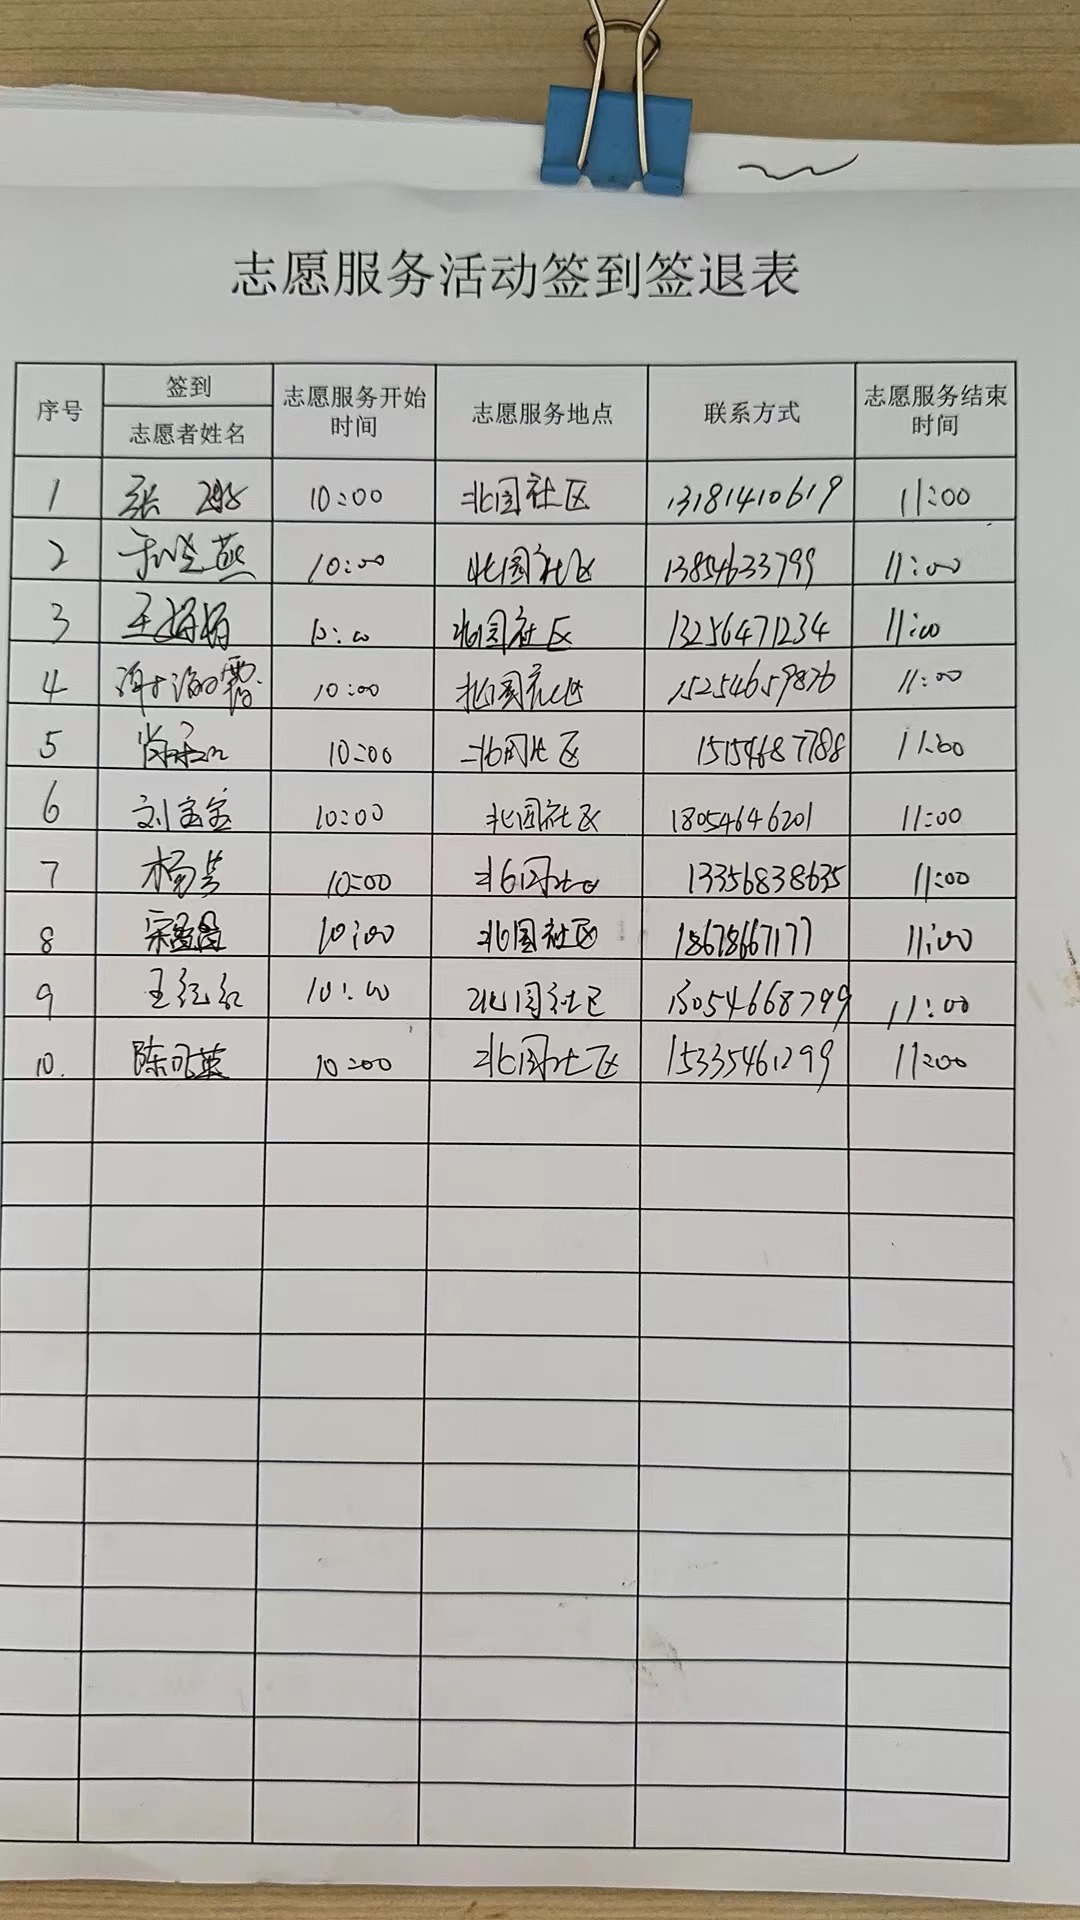 志愿服务活动签到签退表
序号 签到 志愿者姓名 志愿服务开始时间 志愿服务地点 联系方式 志愿服务结束时间
1 张 10:00 北国社区 13181410619 11:00
2 燕 10:00 北国社区 13854633799 11:00
3 王娟娟 10:00 北国社区 13256471234 11:00
4 霞 10:00 北国社区 15254659876 11:00
5 10:00 北国社区 15154687788 11:00
6 刘宝宝 10:00 北国社区 18054646201 11:00
7 杨芳 10:00 北国社区 13356838635 11:00
8 宋 10:00 北国社区 18678667177 11:00
9 王红红 10:00 北国社区 15054668799 11:00
10. 陈 英 10:00 北国社区 15335461299 11:00